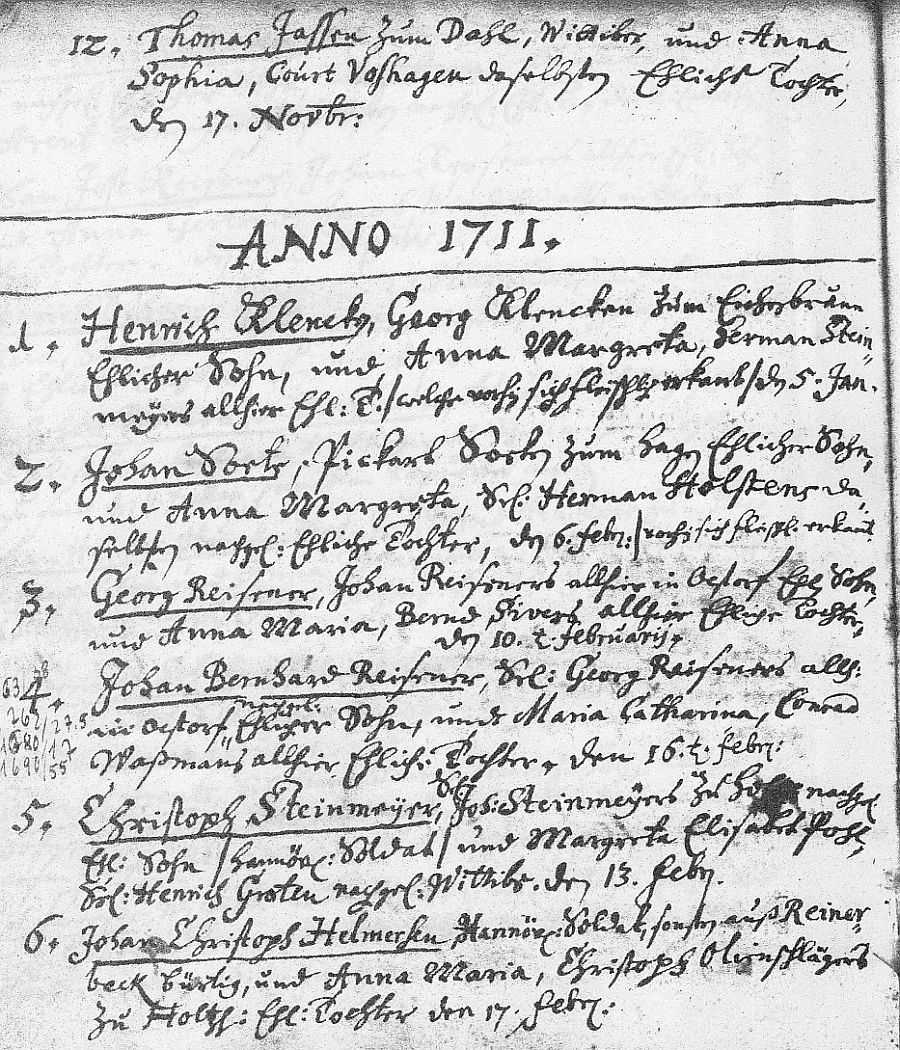 12. Thomas Jassen zum Dahl, Wittiber, und Anna
Sophia, Court Voshagen daselbsten Ehliche Tochter,
den 17. Novbr:
ANNO 1711.
1. Henrich Klencke, Georg Klencken zum Eichenbrunn
Ehlicher Sohn, und Anna Margreta, Herman Stein=
meyers allhier Ehl: T. / welche sich fleischl. erkant / den 5. Jan.
2. Johan Sorte, Pickart Sorten zum Hagen Ehlicher Sohn,
und Anna Margreta, Sel: Herman Holstens da
selbsten nachgel: Ehliche Tochter, den 6. febr: / sich fleischl: erkant
3. Georg Reisener, Johan Reiseners allhier in Oestorf Ehl. Sohn,
und Anna Maria, Bernd Sivers allhier Ehlige Tochter,
den 10. t. februarij.
4. Johan Bernhard Reisener, Sel: Georg Reiseners allh:
in Oestorf nachgel: Ehlicher Sohn, und Maria Catharina, Conrad
Waßmans allhier Ehliche Tochter. den 16. t. febr:
5. Christoph Steinmeyer, Sel. Joh: Steinmeyers zu nachgel
Ehl: Sohn / Hannöv: Soldat / und Margreta Elisabet Pohl,
Sel: Henrich Groten nachgel: Wittibe. den 13. febr.
6. Johan Christoph Helmersen Hannöv: Soldat, sonsten auß Reiner=
beck bürtig, und Anna Maria, Christoph Olienschlägers
zu Holtzh: Ehl: Tochter den 17. febr: